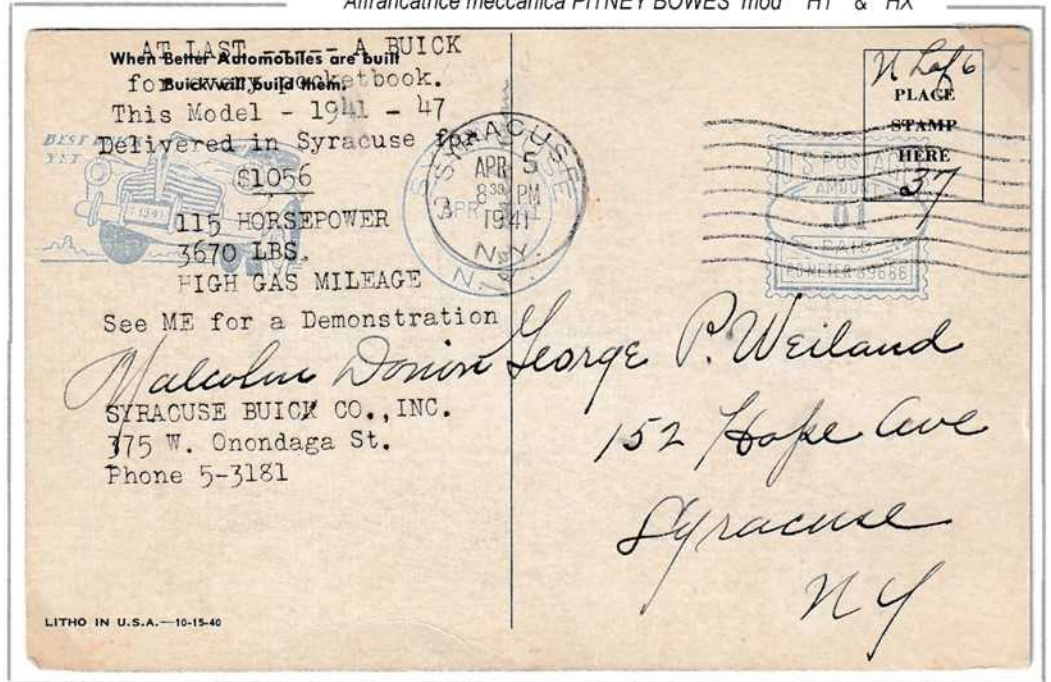 Affrancatrice meccanica PITNEY BOWES mod "HT" & "HX"
When Better Automobiles are built
Buick will build them.
AT LAST ----- A BUICK
for every pocketbook.
This Model - 1941 - 47
Delivered in Syracuse for
$1056
115 HORSEPOWER
3670 LBS.
HIGH GAS MILEAGE
See ME for a Demonstration
Malcolm
SYRACUSE BUICK CO., INC.
375 W. Onondaga St.
Phone 5-3181
LITHO IN U.S.A.—10-15-40
BEST
YET
1941
SYRACUSE
APR 5
8 30 PM
1941
N.Y.
PLACE
STAMP
HERE
37
U.S. POSTAGE
AMOUNT
01
PAID
METER 89686
George P. Weiland
152 Hope Ave
Syracuse
NY